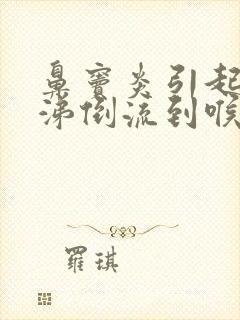 鼻窦炎引起
涕倒流到喉
羅琪